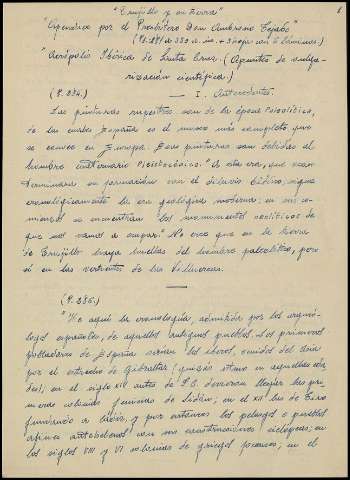 "Trujillo y su tierra"
"Apéndice por el Presbítero Don Ambrosio Tejado"
(Pp. 281 a 332 + láminas.)
"Acrópolis Ibérica de Santa Cruz. (Apuntes de vulga-
rización científica.)
(P. 284.) — I. Antecedentes.
Las pinturas rupestres son de la época paleolítica,
de las cuales España es el museo más completo que
se conoce en Europa. Esas pinturas son debidas al
hombre cuaternario pleistocénico. A esta era, que
termina su formación con el diluvio bíblico, sigue
cronológicamente la era geológica moderna: en sus co-
mienzos se encuentran los monumentos neolíticos de
que nos vamos a ocupar." No creo que en la tierra
de Trujillo haya huellas del hombre paleolítico, pero
sí en las vertientes de las Villuercas.
(P. 286.)
"He aquí la cronología, admitida por los arqueó-
logos españoles, de aquellos antiguos pueblos. Los primeros
pobladores de España serían los iberos, venidos del
por el estrecho de Gibraltar (quizás istmo en aquellas eda-
des); en el siglo XV antes de J.C. debieron llegar las pri-
meras colonias fenicias de Sidón; en el XII las de Tiro
fundando a Cádiz, y por entonces los pelasgos o pueblos
afines con sus construcciones ciclópeas; en
los siglos VIII y VI colonias de griegos focenses; en el